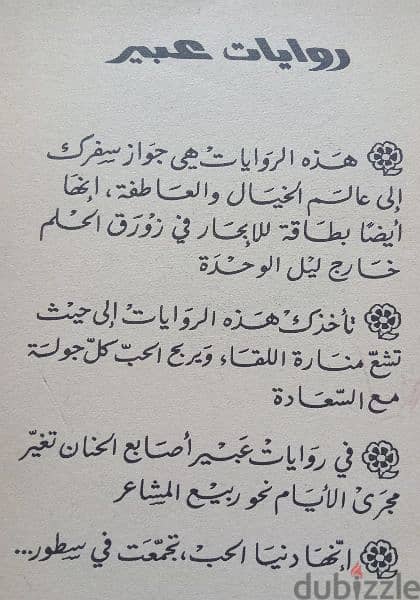 روايات عبير
هَذه الروَايات هيَ جوَاز سِفرك
إلى عالـم الخيَال والعَاطفة، انهَا
أيضًا بطاقة للإبحار في زوْرَق الحلم
خارج ليْل الوحْدَة
تأخذك هَذه الروَايات إلى حيْث
تشعّ منَارة اللقَاء وَيربح الحبّ كلّ جولة
مع السّعَادة
في روَايات عَبير أصَابع الحنَان تغيّر
مجرَى الأيَام نحو رَبيع المشَاعر
انّهَا دنيَا الحب، تجمّعَت في سطور...
dubizzle